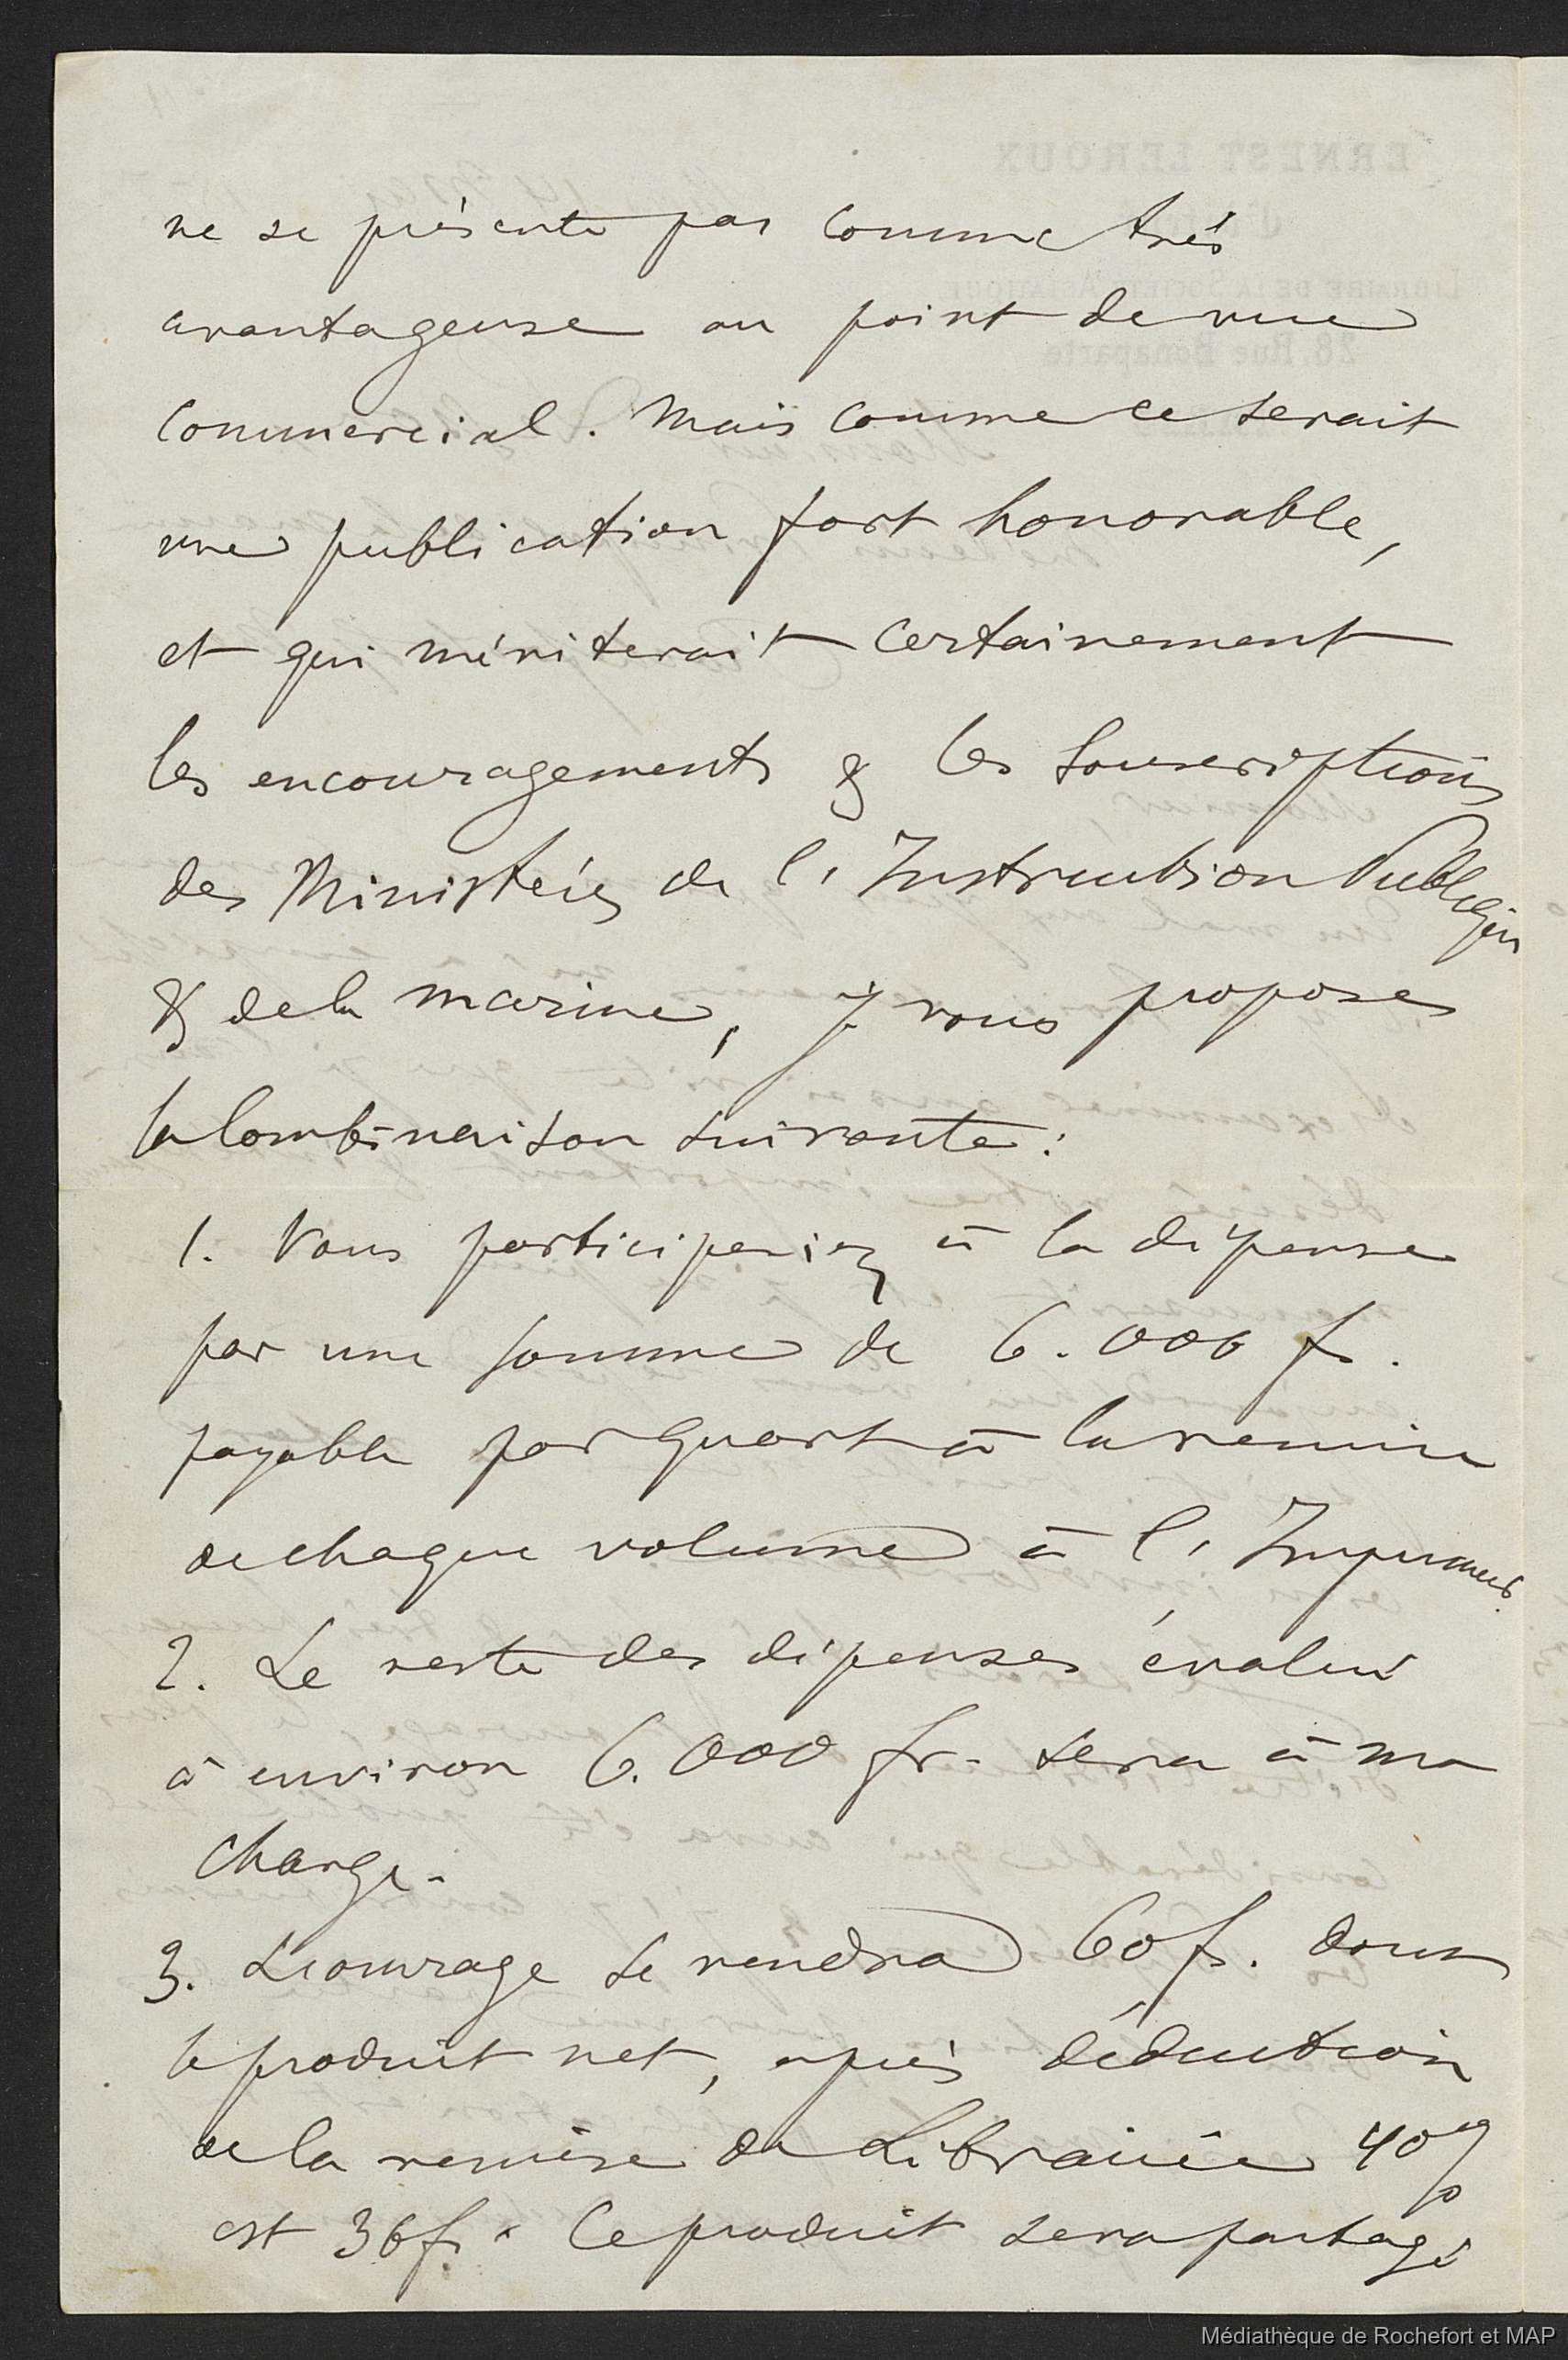 ne se présente pas comme très
avantageuse au point de vue
commercial. Mais comme ce serait
une publication fort honorable,
et qui mériterait certainement
les encouragements & les souscriptions
des Ministères de l'Instruction Publique
& de la marine, je vous propose
la Combinaison suivante :
1. Vous participeriez à la dépense
par une somme de 6.000 f.
payable par quart à la remise
de chaque volume à l'Imprimeur.
2. Le reste des dépenses évalué
à environ 6.000 fr. sera à ma
charge.
3. L'ouvrage se vendra 60 f. dont
le produit net, après déduction
de la remise de Librairie 40 %
est 36 f. Ce produit sera partagé
Médiathèque de Rochefort et MAP